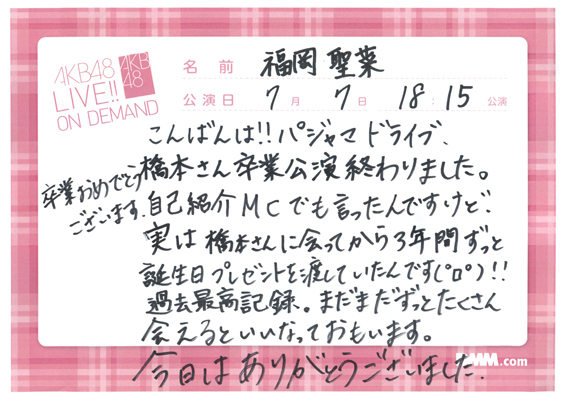 AKB48
LIVE!!
ON DEMAND
AKB
48
名前 福岡 聖菜
公演日 7月 7日 18:15 公演
こんばんは!!パジャマドライブ、
橋本さん卒業公演終わりました。
卒業おめでとう
ございます。
自己紹介MCでも言ったんですけど、
実は橋本さんに会ってから3年間ずっと
誕生日プレゼントを渡していたんです(°ロ°)!!
過去最高記録。まだまだずっとたくさん
会えるといいなっておもいます。
今日はありがとうございました。
DMM.com